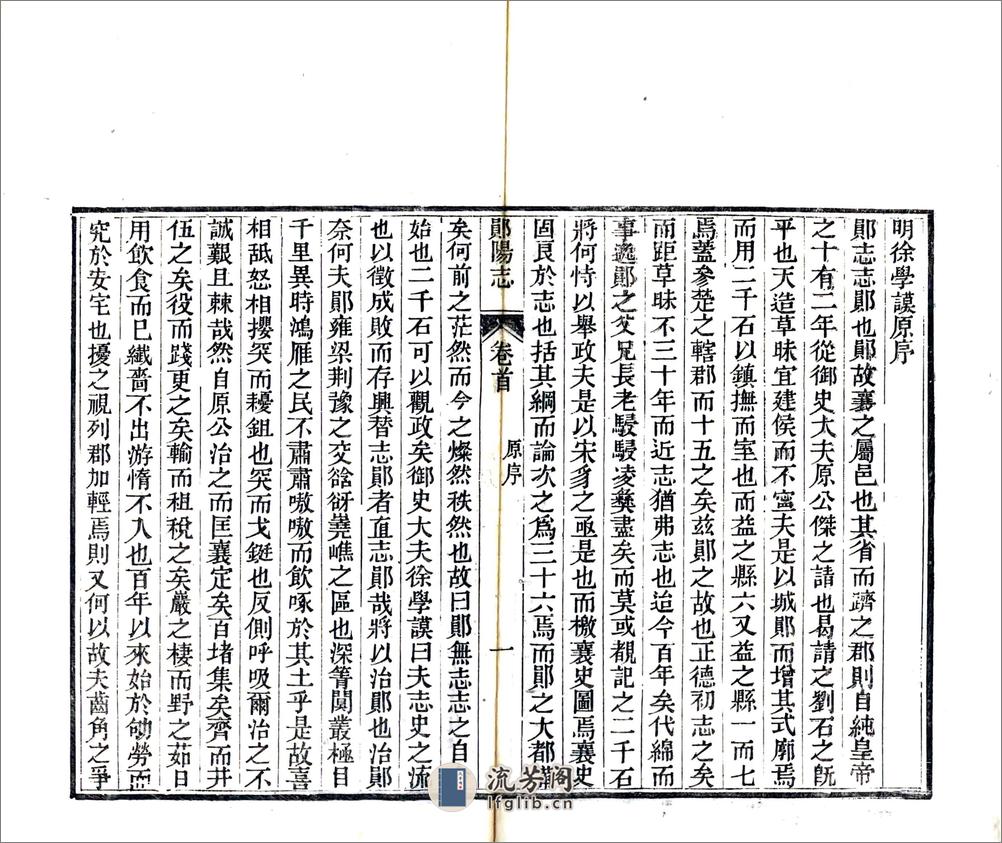 明徐學謨原序
鄖志志鄖也鄖故襄之屬邑也其省而躋之郡則自純皇帝
之十有二年從御史大夫原公傑之請也曷請之劉石之旣
平也天造草昧宜建侯而不寧夫是以城鄖而增其式廓焉
而用二千石以鎮撫而室也而益之縣六又益之縣一而七
焉蓋參楚之轄郡而十五之矣兹鄖之故也正德初志之矣
而距草昧不三十年而近志猶弗志也迨今百年矣代綿而
事逸鄖之父兄長老駸駸凌彝盡矣而莫或覩記之二千石
將何恃以舉政夫是以宋豸之亟是也而檄襄史圖焉襄史
固良於志也括其綱而論次之爲三十六焉而鄖之大都
鄖陽志
卷首
原序
一
矣何前之茫然而今之燦然秩然也故曰鄖無志志之自
始也二千石可以觀政矣御史大夫徐學謨曰夫志史之流
也以徵成敗而存興替志鄖者直志鄖哉將以治鄖也治鄖
奈何夫鄖雍梁荆豫之交谽谺嶤嶕之區也深箐闃叢極目
千里異時鴻雁之民不肅肅嗷嗷而飲啄於其土乎是故喜
相舐怒相攖突而耰鉏也突而戈鋋也反側呼吸爾治之不
誠艱且棘哉然自原公治之而匡襄定矣百堵集矣齊而井
伍之矣役而踐更之矣輸而租稅之矣嚴之棲而野之茹日
用飲食而已纖嗇不出游惰不入也百年以來始於劬勞而
究於安宅也擾之視列郡加輕焉則又何以故夫齒角之爭
流芳阁
lfglib.cn